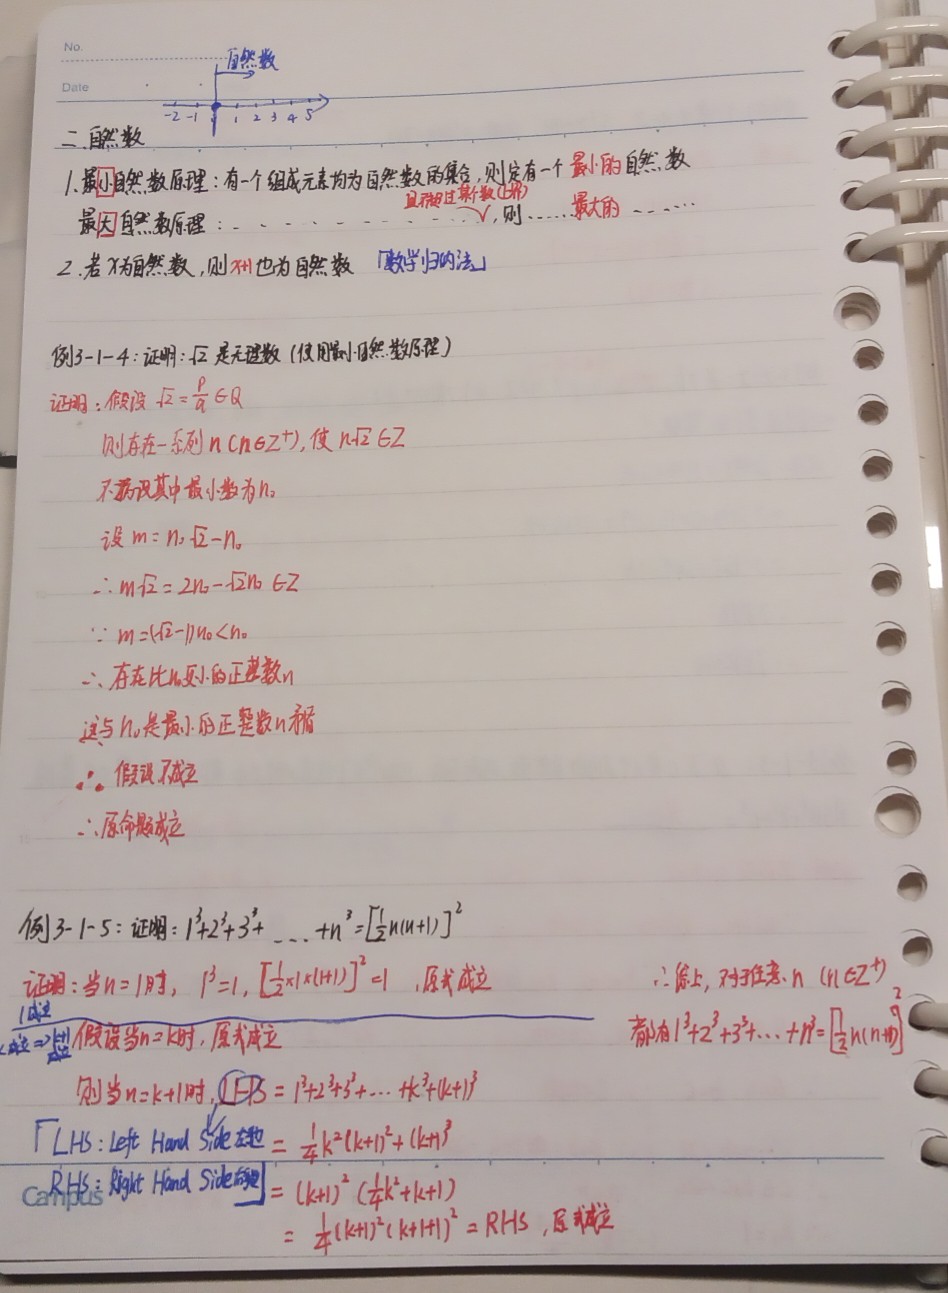 No.
Date
自然数
-2 -1 1 2 3 4 5
二.自然数
1.最小自然数原理:有一个组成元素均为自然数的集合,则定有一个最小的自然数
且不超过某个数(上界)
最大自然数原理:- - - - - - - - - - - -,则……最大的……
2.若x为自然数,则x+1也为自然数 「数学归纳法」
例3-1-4:证明:√2是无理数(使用最小自然数原理)
证明:假设√2=p/q∈Q
则存在一系列n(n∈Z⁺),使n√2∈Z
不妨设其中最小数为n₀
设m=n₀√2-n₀
∴m√2=2n₀-√2n₀∈Z
∵m=(√2-1)n₀<n₀
∴存在比n₀更小的正整数n
这与n₀是最小的正整数n矛盾
∴假设不成立
∴原命题成立
例3-1-5:证明:1³+2³+3³+…+n³=[½n(n+1)]²
证明:当n=1时,1³=1,[½×1×(1+1)]²=1,原式成立
1成立
k成立⇒k+1成立
假设当n=k时,原式成立
则当n=k+1时,LHS=1³+2³+3³+…+k³+(k+1)³
「LHS:Left Hand Side左边 =¼k²(k+1)²+(k+1)³
RHS:Right Hand Side右边」 =(k+1)²(¼k²+k+1)
Campus
=¼(k+1)²(k+1+1)²=RHS,原式成立
∴综上,对于任意n(n∈Z⁺)
都有1³+2³+3³+…+n³=[½n(n+1)]²